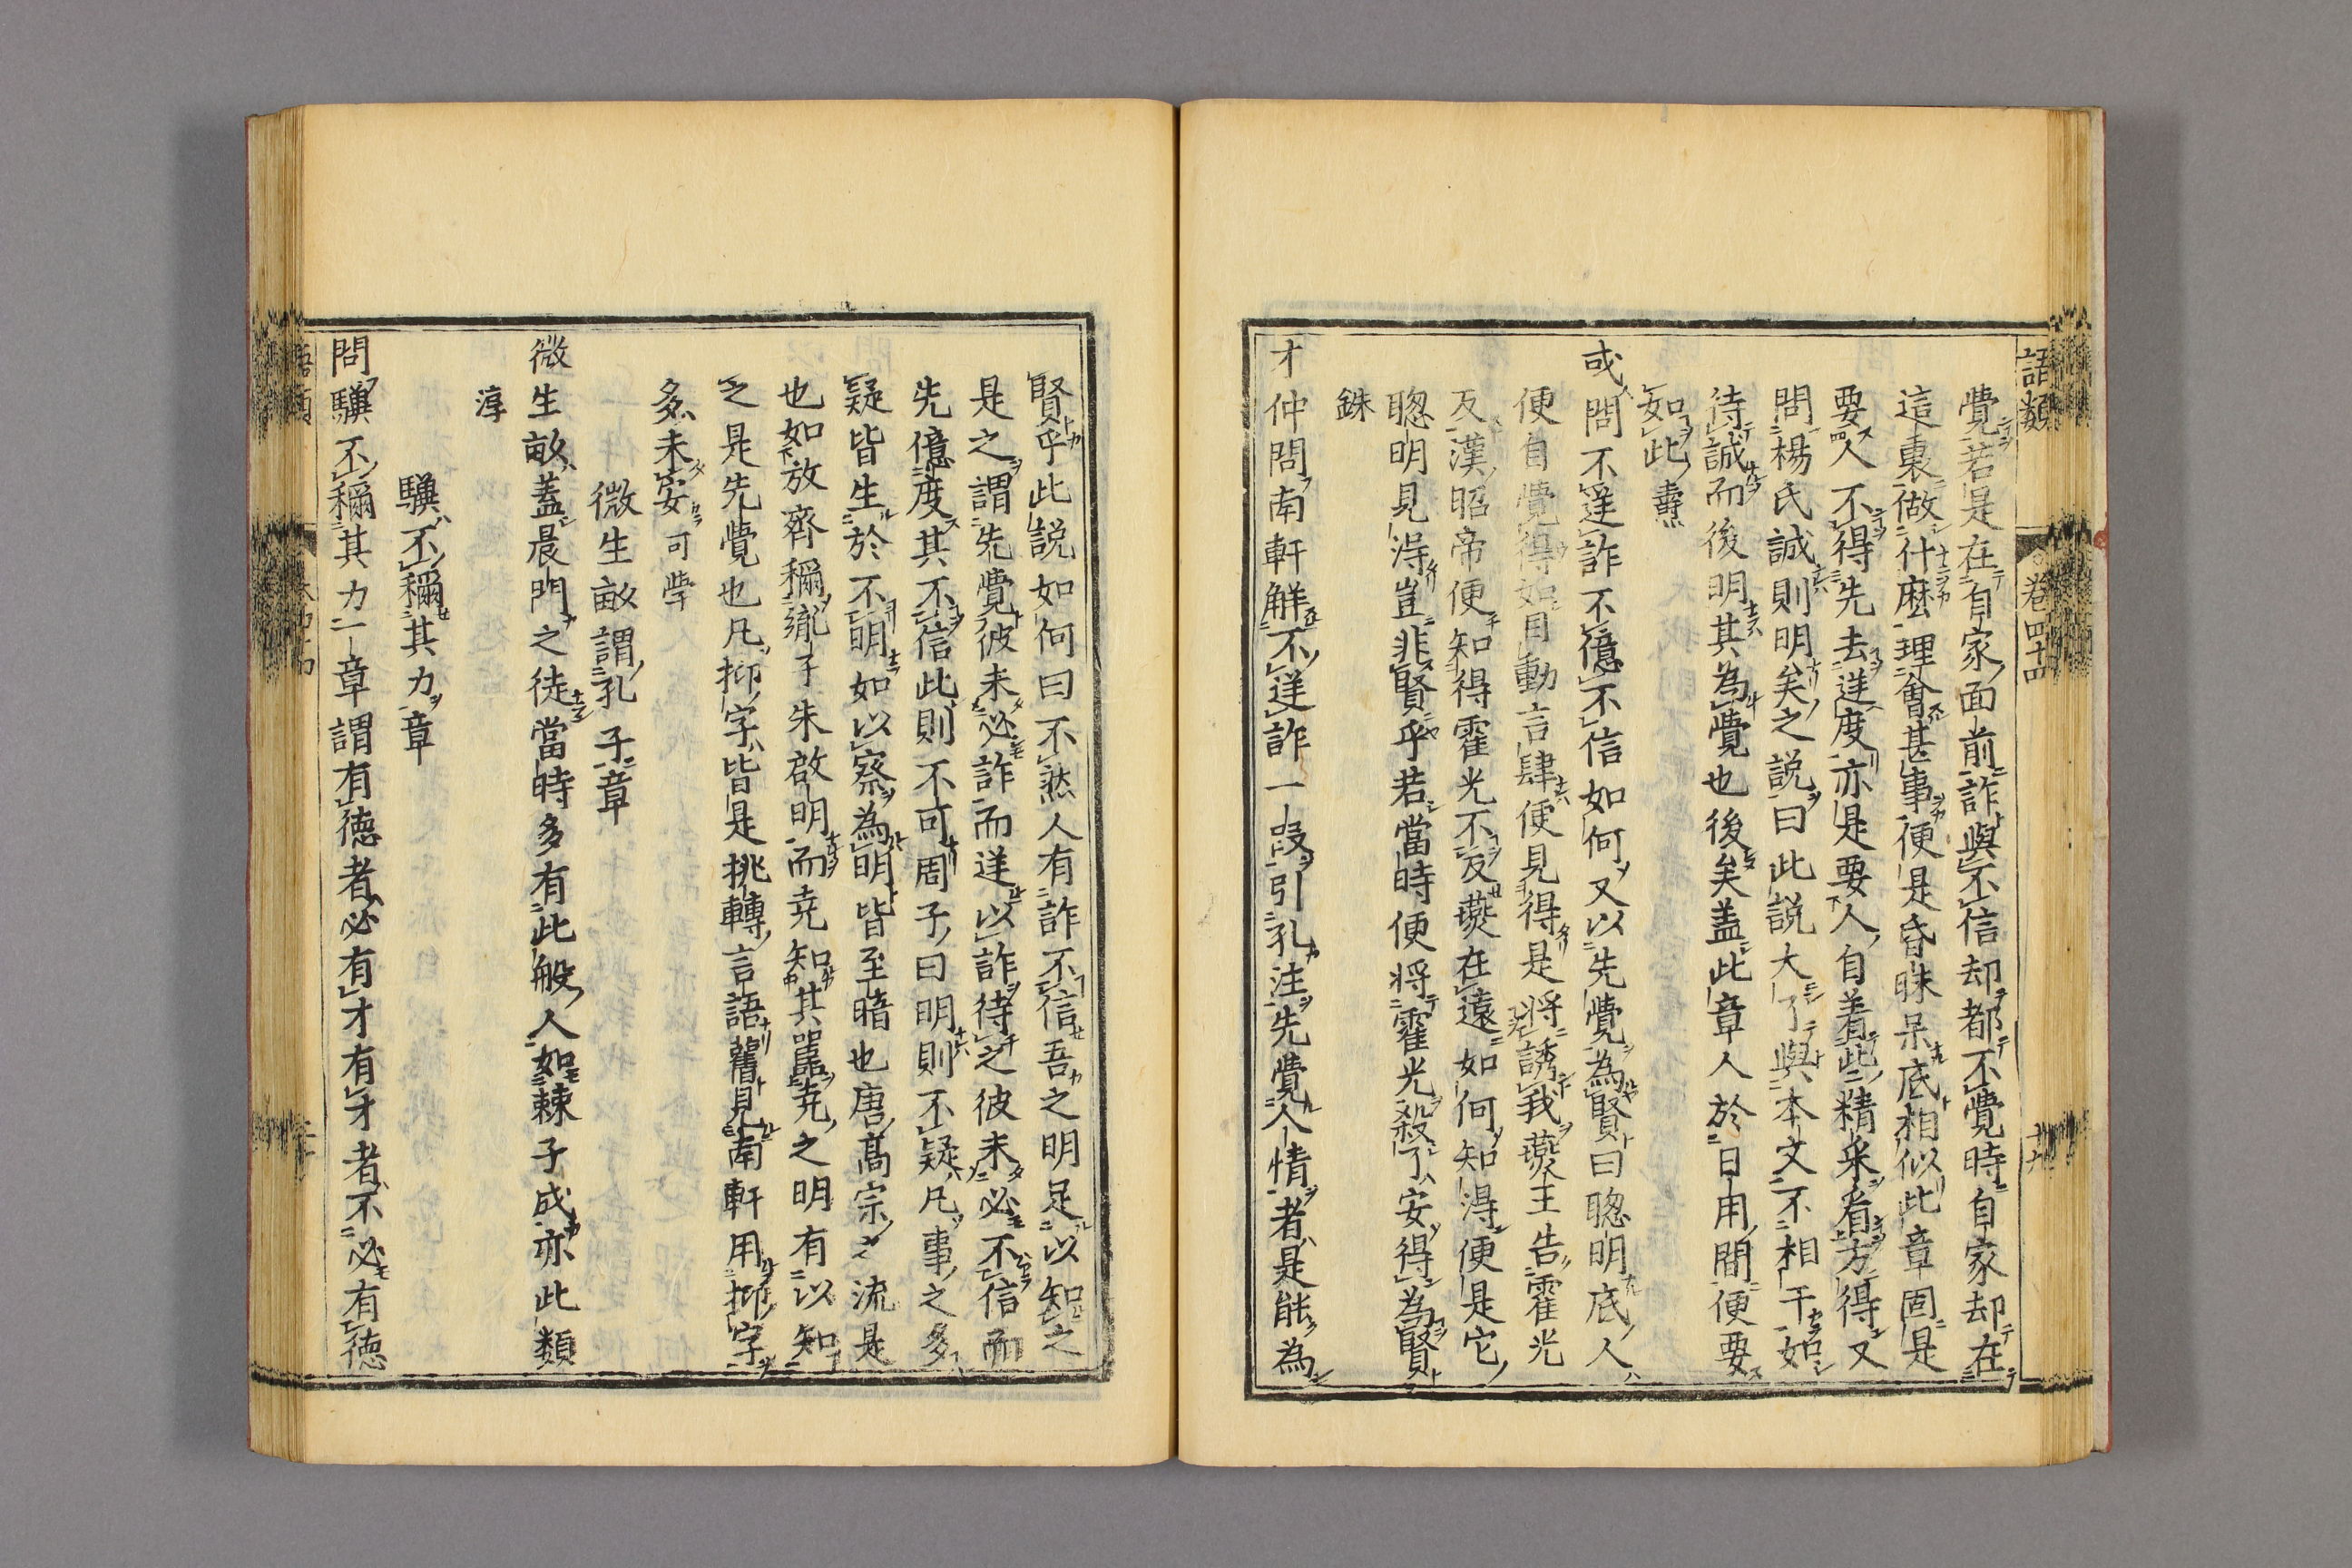 語類
卷四十四
覺若是在自家面前詐與不信却都不覺時自家却在
這裏做什麽理會甚事便是昏昧呆底相似此章固是
要人不得先去逆度亦是要人自着些精采看方得又
問楊氏誠則明矣之説曰此説大了與本文不相干如
待誠而後明其為覺也後矣蓋此章人於日用間便要
如此燾
或問不逆詐不億不信如何又以先覺為賢曰聰明底人
便自覺得如目動言肆便見得是將誘我燕王告霍光
反漢昭帝便知得霍光不反燕在遠如何知得便是它
聰明見得豈非賢乎若當時便將霍光殺了安得為賢
銖
才仲問南軒觧不逆詐一段引孔注先覺人情者是能為
賢乎此説如何曰不然人有詐不信吾之明足以知之
是之謂先覺彼未必詐而逆以詐待之彼未必不信而
先億度其不信此則不可周子曰明則不疑凡事之多
疑皆生於不明如以察為明皆至暗也唐髙宗之流是
也如放齊稱胤子朱啟明而堯知其嚚堯之明有以知
之是先覺也凡抑字皆是挑轉言語舊見南軒用抑字
多未安可學
微生畝謂孔子章
微生畝蓋晨門之徒當時多有此般人如棘子成亦此類
淳
驥不稱其力章
問驥不稱其力一章謂有德者必有才有才者不必有德